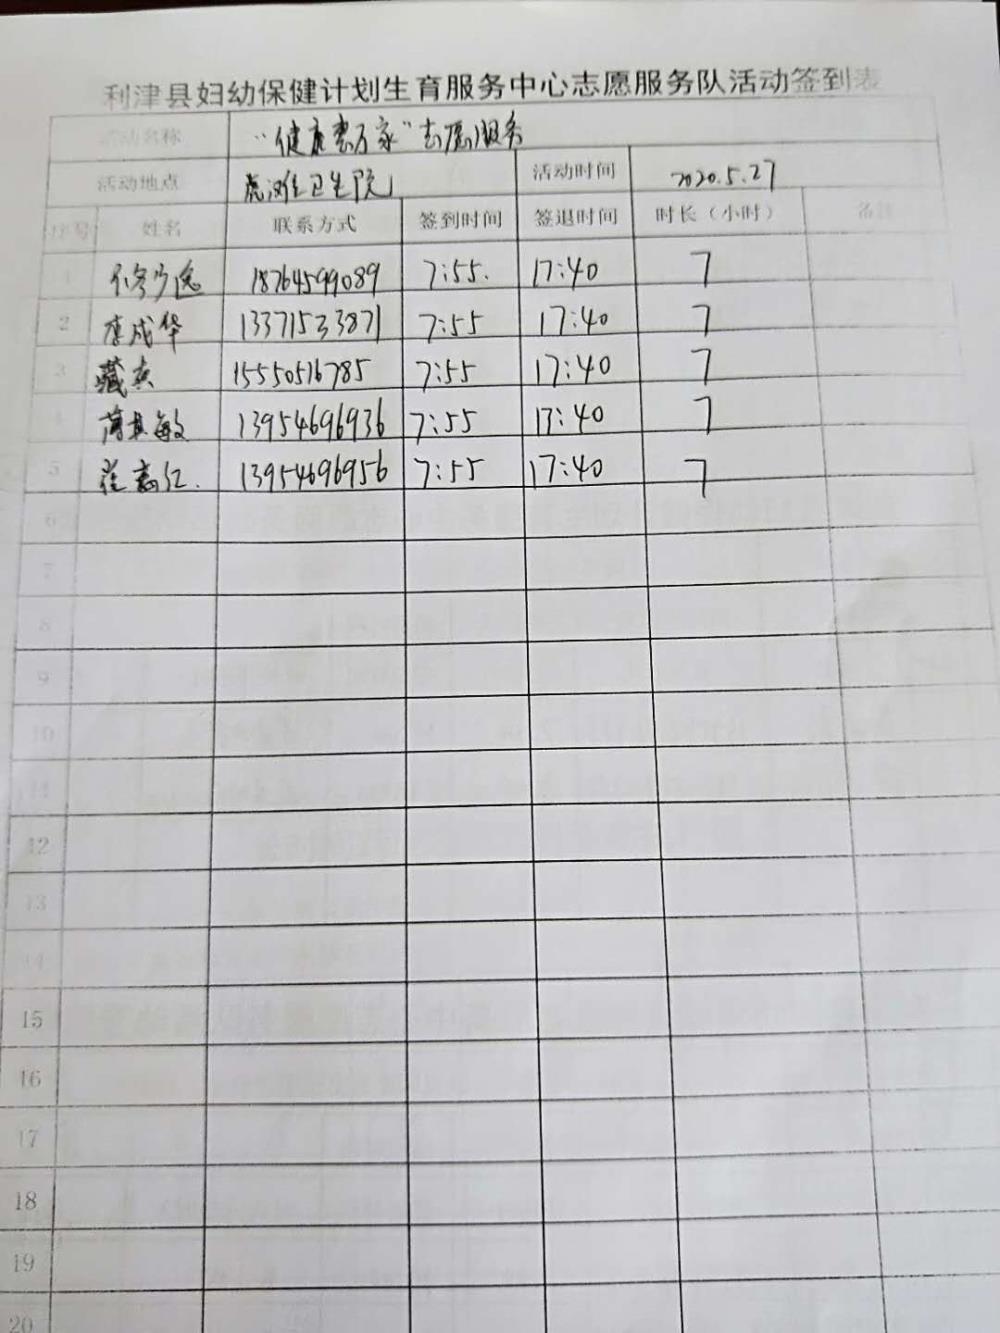 利津县妇幼保健计划生育服务中心志愿服务队活动签到表
活动名称 “健康惠万家”志愿服务
活动地点 虎滩卫生院 活动时间 2020.5.27
序号 姓名 联系方式 签到时间 签退时间 时长（小时） 备注
1 18764599089 7:55. 17:40 7
2 唐成华 13371533871 7:55 17:40 7
3 15550516785 7:55 17:40 7
4 13954696936 7:55 17:40 7
5 13954696956 7:55 17:40 7
6
7
8
9
10
11
12
13
14
15
16
17
18
19
20